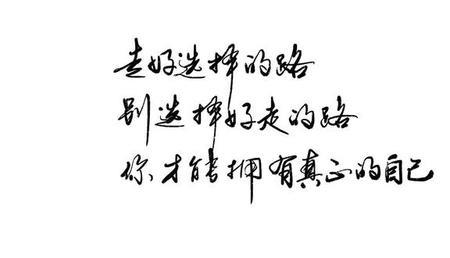 走好选择的路
别选择好走的路
你才能拥有真正的自己